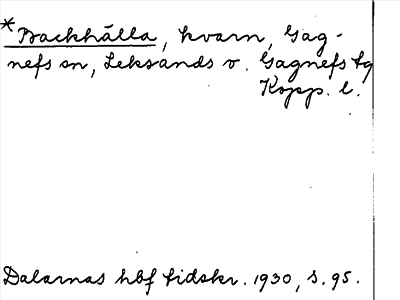 *Backhålla, kvarn, Gag-
nefs sn, Leksands v. Gagnefs tg
Kopp. l.
Dalarnas hbf tidskr. 1930, s. 95.